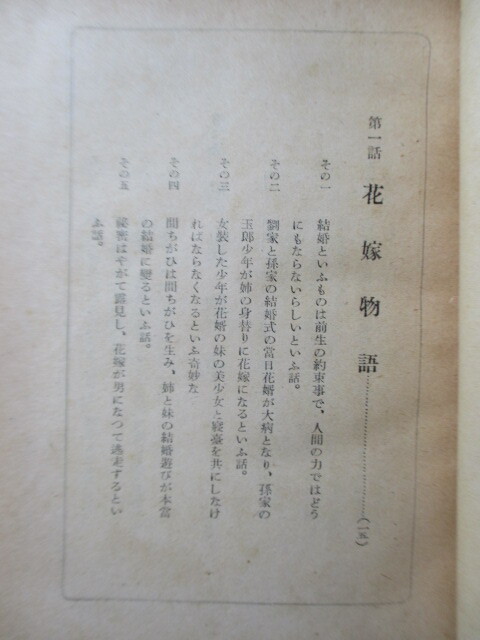 第一話 花嫁物語……………………(一五)
その一 結婚といふものは前生の約束事で、人間の力ではどう
にもならないらしいといふ話。
その二 劉家と孫家の結婚式の當日花婿が大病となり、孫家の
玉郎少年が姉の身替りに花嫁になるといふ話。
その三 女裝した少年が花婿の妹の美少女と寢臺を共にしたけ
ればならなくなるといふ奇妙な
その四 間ちがひは間ちがひを生み、姉と妹の結婚遊びが本當
の結婚に變るといふ話。
その五 秘密はやがて露見し、花嫁が男になつて逃走するとい
ふ話。